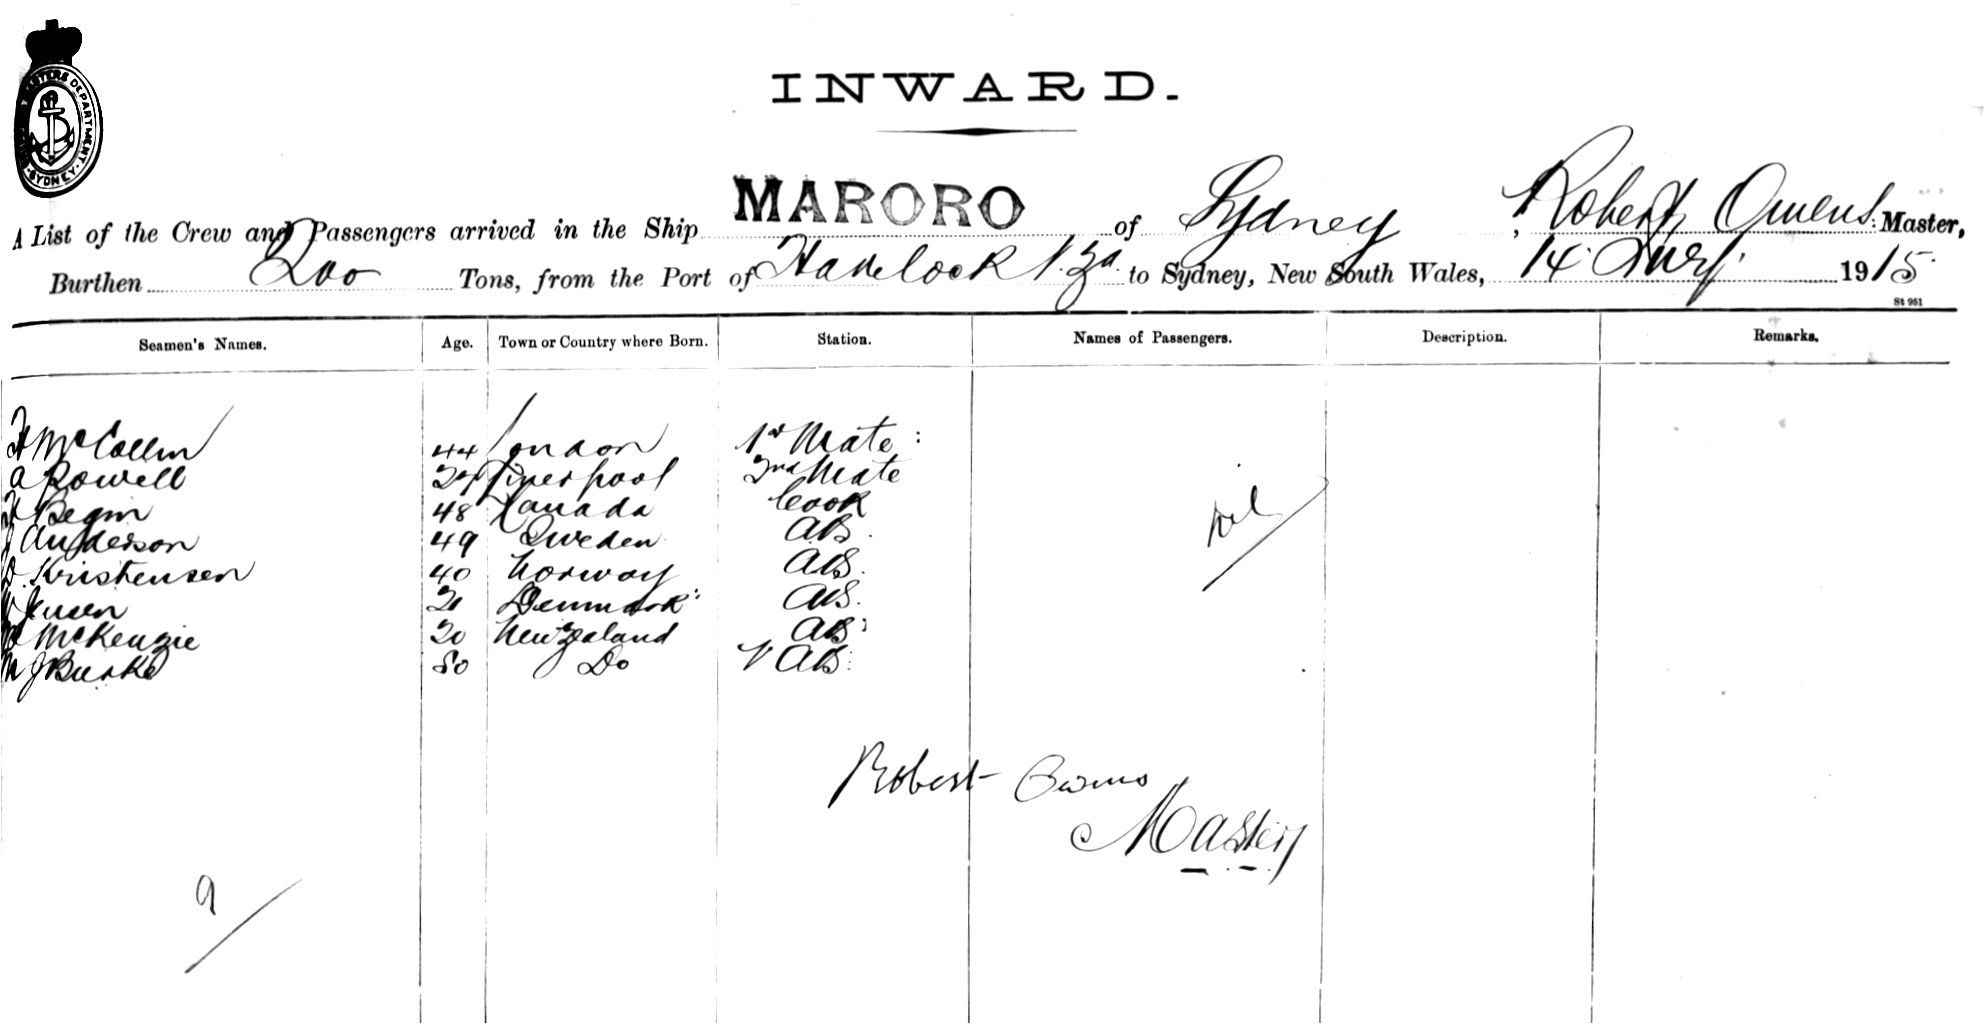 CUSTOMS DEPARTMENT · SYDNEY ·
INWARD.
A List of the Crew and Passengers arrived in the Ship MARORO of Sydney, Robert Owens. Master,
Burthen 200 Tons, from the Port of Havelock N. Za. to Sydney, New South Wales, 14 July 1915
St 961
Seamen's Names. Age. Town or Country where Born. Station. Names of Passengers. Description. Remarks.
McCollin 44 London 1st Mate
A Rowell Liverpool 2nd Mate
Begin 48 Canada Cook
Anderson 49 Sweden AB.
Kristensen 40 Norway AB.
Jensen 21 Denmark AB.
McKenzie 20 New Zealand AB
M J Burke 50 Do AB
Nil
Robert Owens
Master
9